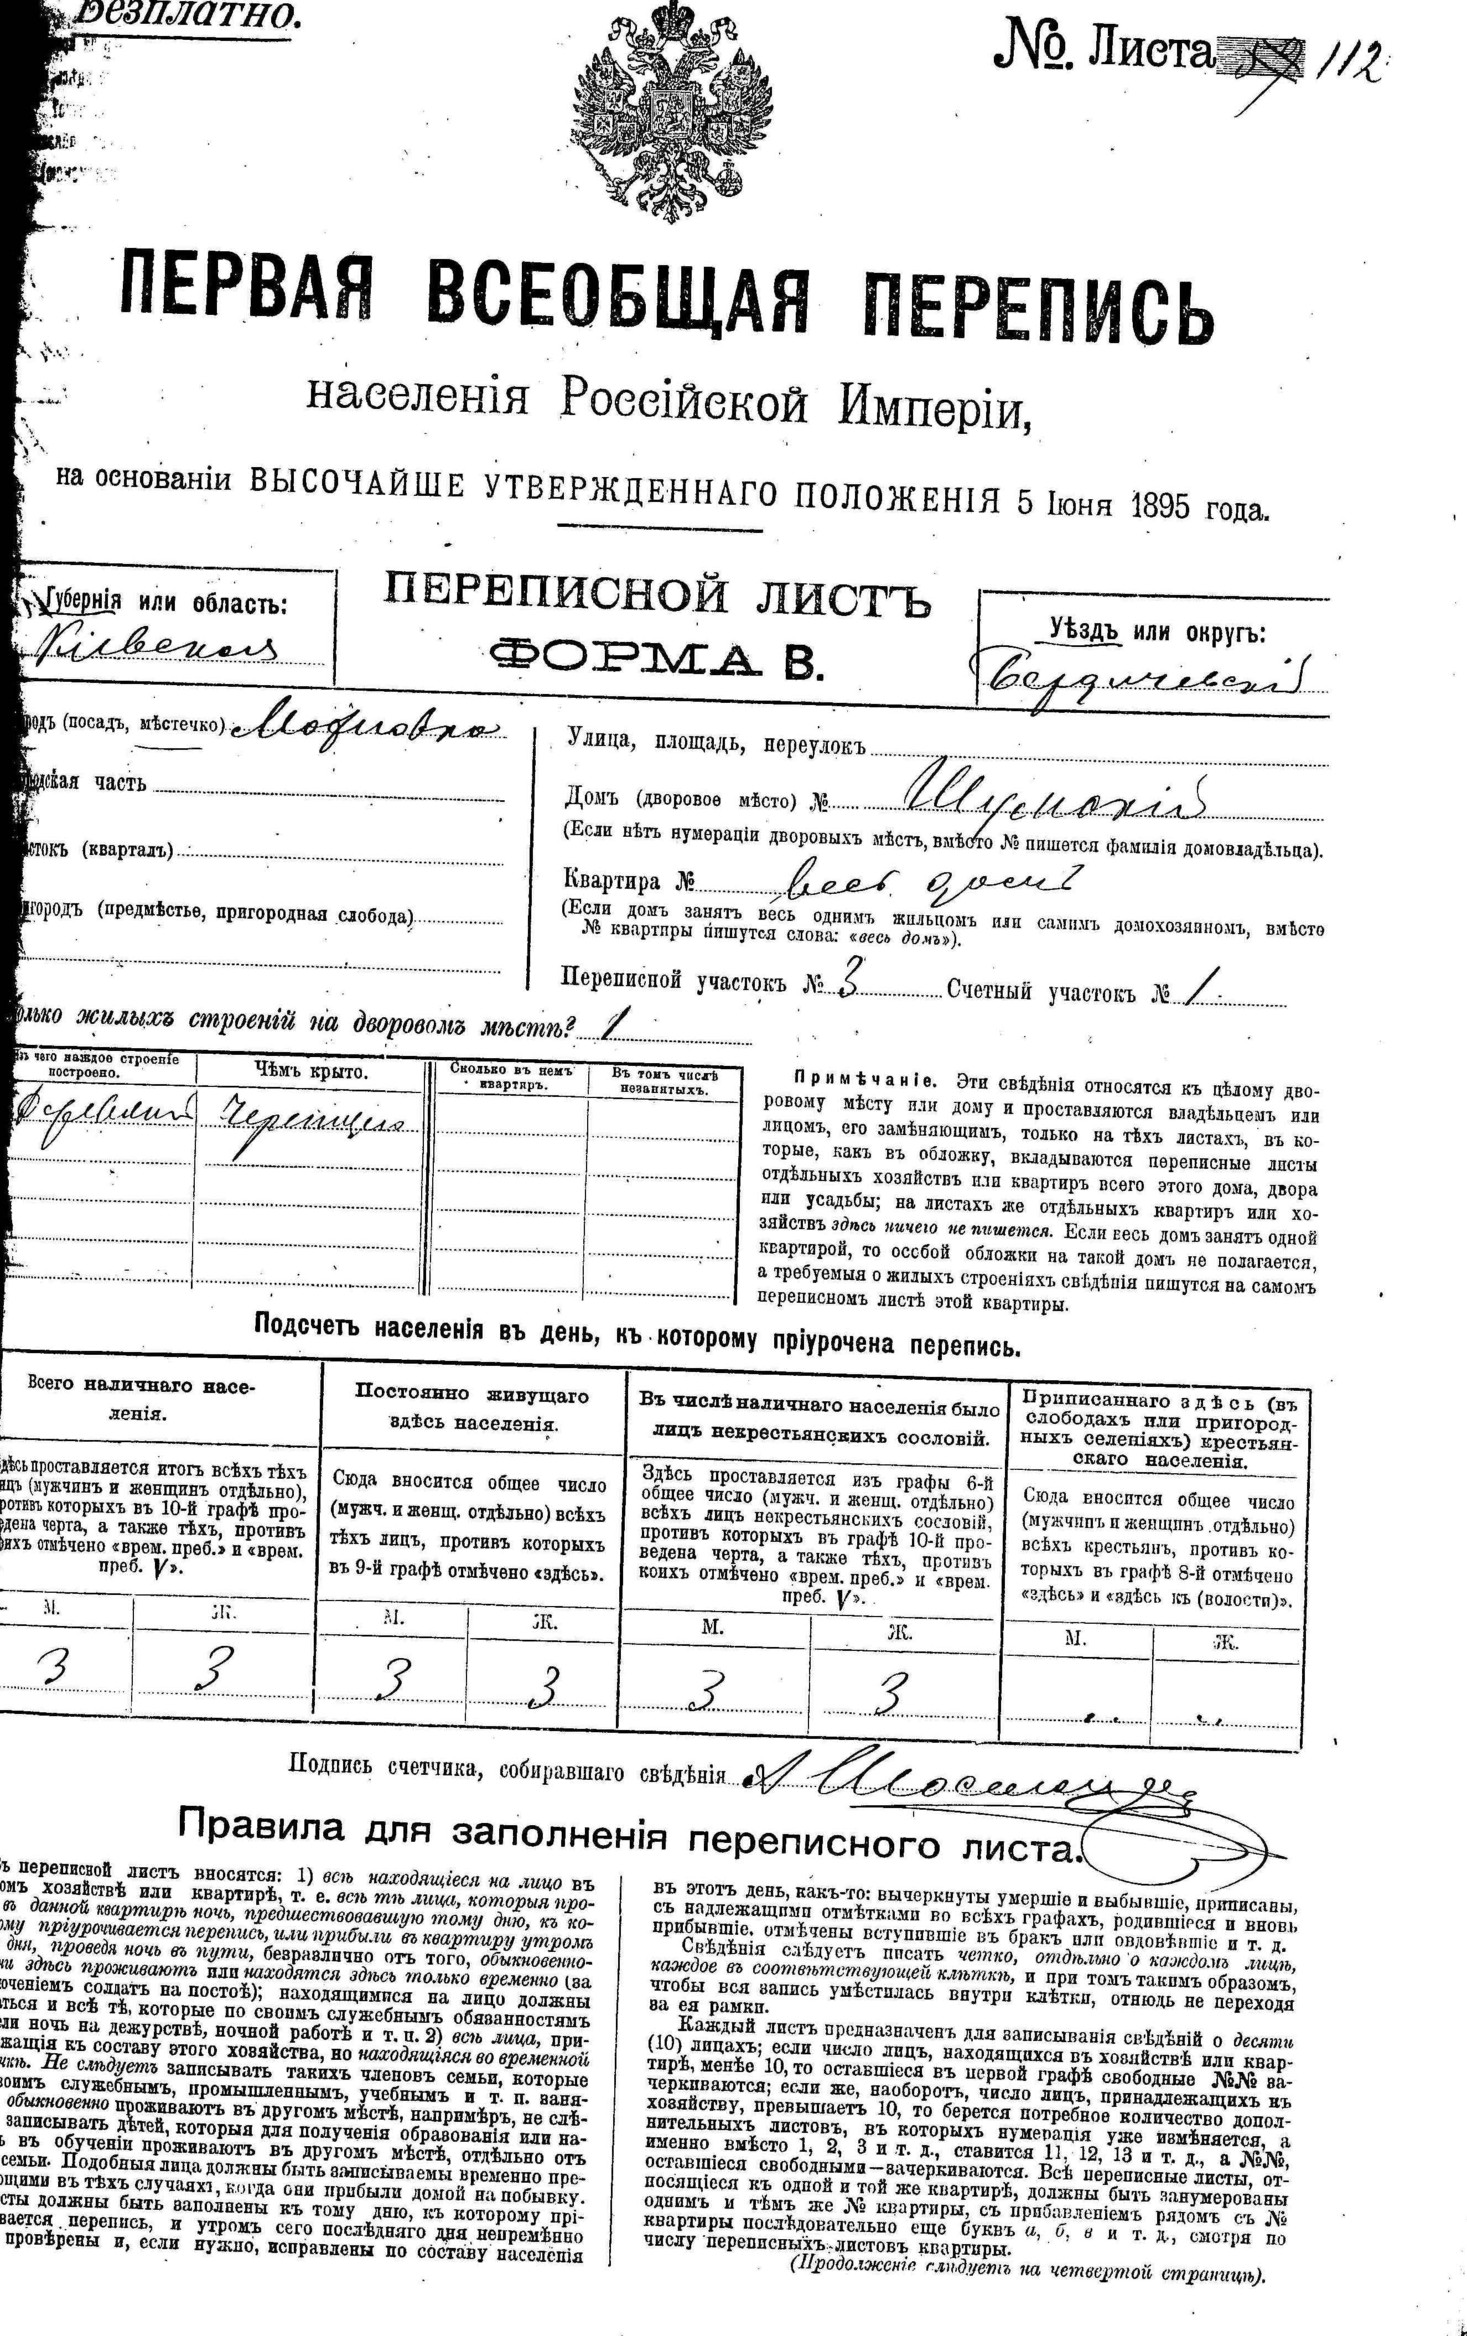 Безплатно.
№. Листа 112
ПЕРВАЯ ВСЕОБЩАЯ ПЕРЕПИСЬ
населенія Россійской Имперіи,
на основаніи ВЫСОЧАЙШЕ УТВЕРЖДЕННАГО ПОЛОЖЕНІЯ 5 Іюня 1895 года.
Губернія или область:
Кіевская
ПЕРЕПИСНОЙ ЛИСТЪ
ФОРМА В.
Уѣздъ или округъ:
Бердичевскій
(посадъ, мѣстечко) Махновка
часть
(кварталъ)
(предмѣстье, пригородная слобода)
Улица, площадь, переулокъ
Домъ (дворовое мѣсто) № Шумскій
(Если нѣтъ нумераціи дворовыхъ мѣстъ, вмѣсто № пишется фамилія домовладѣльца).
Квартира № весь домъ
(Если домъ занятъ весь однимъ жильцомъ или самимъ домохозяиномъ, вмѣсто
№ квартиры пишутся слова: «весь домъ»).
Переписной участокъ № 3 Счетный участокъ № 1
жилыхъ строеній на дворовомъ мѣстѣ? 1
чего каждое строеніе
построено.
Чѣмъ крыто.
Сколько въ немъ
квартиръ.
Въ томъ числѣ
незанятыхъ.
Примѣчаніе. Эти свѣдѣнія относятся къ цѣлому дво-
ровому мѣсту или дому и проставляются владѣльцемъ или
лицомъ, его замѣняющимъ, только на тѣхъ листахъ, въ ко-
торые, какъ въ обложку, вкладываются переписные листы
отдѣльныхъ хозяйствъ или квартиръ всего этого дома, двора
или усадьбы; на листахъ же отдѣльныхъ квартиръ или хо-
зяйствъ здѣсь ничего не пишется. Если весь домъ занятъ одной
квартирой, то особой обложки на такой домъ не полагается,
а требуемыя о жилыхъ строеніяхъ свѣдѣнія пишутся на самомъ
переписномъ листѣ этой квартиры.
Подсчетъ населенія въ день, къ которому пріурочена перепись.
Всего наличнаго насе-
ленія.
проставляется итогъ всѣхъ тѣхъ
(мужчинъ и женщинъ отдѣльно),
которыхъ въ 10-й графѣ про-
черта, а также тѣхъ, противъ
отмѣчено «врем. преб.» и «врем.
преб. V».
Постоянно живущаго
здѣсь населенія.
Сюда вносится общее число
(мужч. и женщ. отдѣльно) всѣхъ
тѣхъ лицъ, противъ которыхъ
въ 9-й графѣ отмѣчено «здѣсь».
Въ числѣ наличнаго населенія было
лицъ некрестьянскихъ сословій.
Здѣсь проставляется изъ графы 6-й
общее число (мужч. и женщ. отдѣльно)
всѣхъ лицъ некрестьянскихъ сословій,
противъ которыхъ въ графѣ 10-й про-
ведена черта, а также тѣхъ, противъ
коихъ отмѣчено «врем. преб.» и «врем.
преб. V».
Приписаннаго здѣсь (въ
слободахъ или пригород-
ныхъ селеніяхъ) крестьян-
скаго населенія.
Сюда вносится общее число
(мужчинъ и женщинъ отдѣльно)
всѣхъ крестьянъ, противъ ко-
торыхъ въ графѣ 8-й отмѣчено
«здѣсь» и «здѣсь къ (волости)».
М. Ж. М. Ж. М. Ж. М. Ж.
3 3 3 3 3 3
Подпись счетчика, собиравшаго свѣдѣнія
Правила для заполненія переписного листа.
переписной листъ вносятся: 1) всѣ находящіеся на лицо въ
хозяйствѣ или квартирѣ, т. е. всѣ тѣ лица, которыя про-
въ данной квартирѣ ночь, предшествовавшую тому дню, къ ко-
пріурочивается перепись, или прибыли въ квартиру утромъ
дня, проведя ночь въ пути, безразлично отъ того, обыкновенно-
здѣсь проживаютъ или находятся здѣсь только временно (за
солдатъ на постоѣ); находящимися на лицо должны
и всѣ тѣ, которые по своимъ служебнымъ обязанностямъ
ночь на дежурствѣ, ночной работѣ и т. п. 2) всѣ лица, при-
къ составу этого хозяйства, но находящіяся во временной
Не слѣдуетъ записывать такихъ членовъ семьи, которые
служебнымъ, промышленнымъ, учебнымъ и т. п. заня-
обыкновенно проживаютъ въ другомъ мѣстѣ, напримѣръ, не слѣ-
записывать дѣтей, которыя для полученія образованія или на-
въ обученіи проживаютъ въ другомъ мѣстѣ, отдѣльно отъ
семьи. Подобныя лица должны быть записываемы временно пре-
въ тѣхъ случаяхъ, когда они прибыли домой на побывку.
должны быть заполнены къ тому дню, къ которому прі-
перепись, и утромъ сего послѣдняго дня непремѣнно
провѣрены и, если нужно, исправлены по составу населенія
въ этотъ день, какъ-то: вычеркнуты умершіе и выбывшіе, приписаны,
съ надлежащими отмѣтками во всѣхъ графахъ, родившіеся и вновь
прибывшіе, отмѣчены вступившіе въ бракъ или овдовѣвшіе и т. д.
Свѣдѣнія слѣдуетъ писать четко, отдѣльно о каждомъ лицѣ,
каждое въ соотвѣтствующей клѣткѣ, и при томъ такимъ образомъ,
чтобы вся запись умѣстилась внутри клѣтки, отнюдь не переходя
за ея рамки.
Каждый листъ предназначенъ для записыванія свѣдѣній о десяти
(10) лицахъ; если число лицъ, находящихся въ хозяйствѣ или квар-
тирѣ, менѣе 10, то оставшіеся въ первой графѣ свободные №№ за-
черкиваются; если же, наоборотъ, число лицъ, принадлежащихъ къ
хозяйству, превышаетъ 10, то берется потребное количество допол-
нительныхъ листовъ, въ которыхъ нумерація уже измѣняется, а
именно вмѣсто 1, 2, 3 и т. д., ставится 11, 12, 13 и т. д., а №№,
оставшіеся свободными—зачеркиваются. Всѣ переписные листы, от-
носящіеся къ одной и той же квартирѣ, должны быть занумерованы
однимъ и тѣмъ же № квартиры, съ прибавленіемъ рядомъ съ №
квартиры послѣдовательно еще буквъ а, б, в и т. д., смотря по
числу переписныхъ листовъ квартиры.
(Продолженіе слѣдуетъ на четвертой страницѣ).